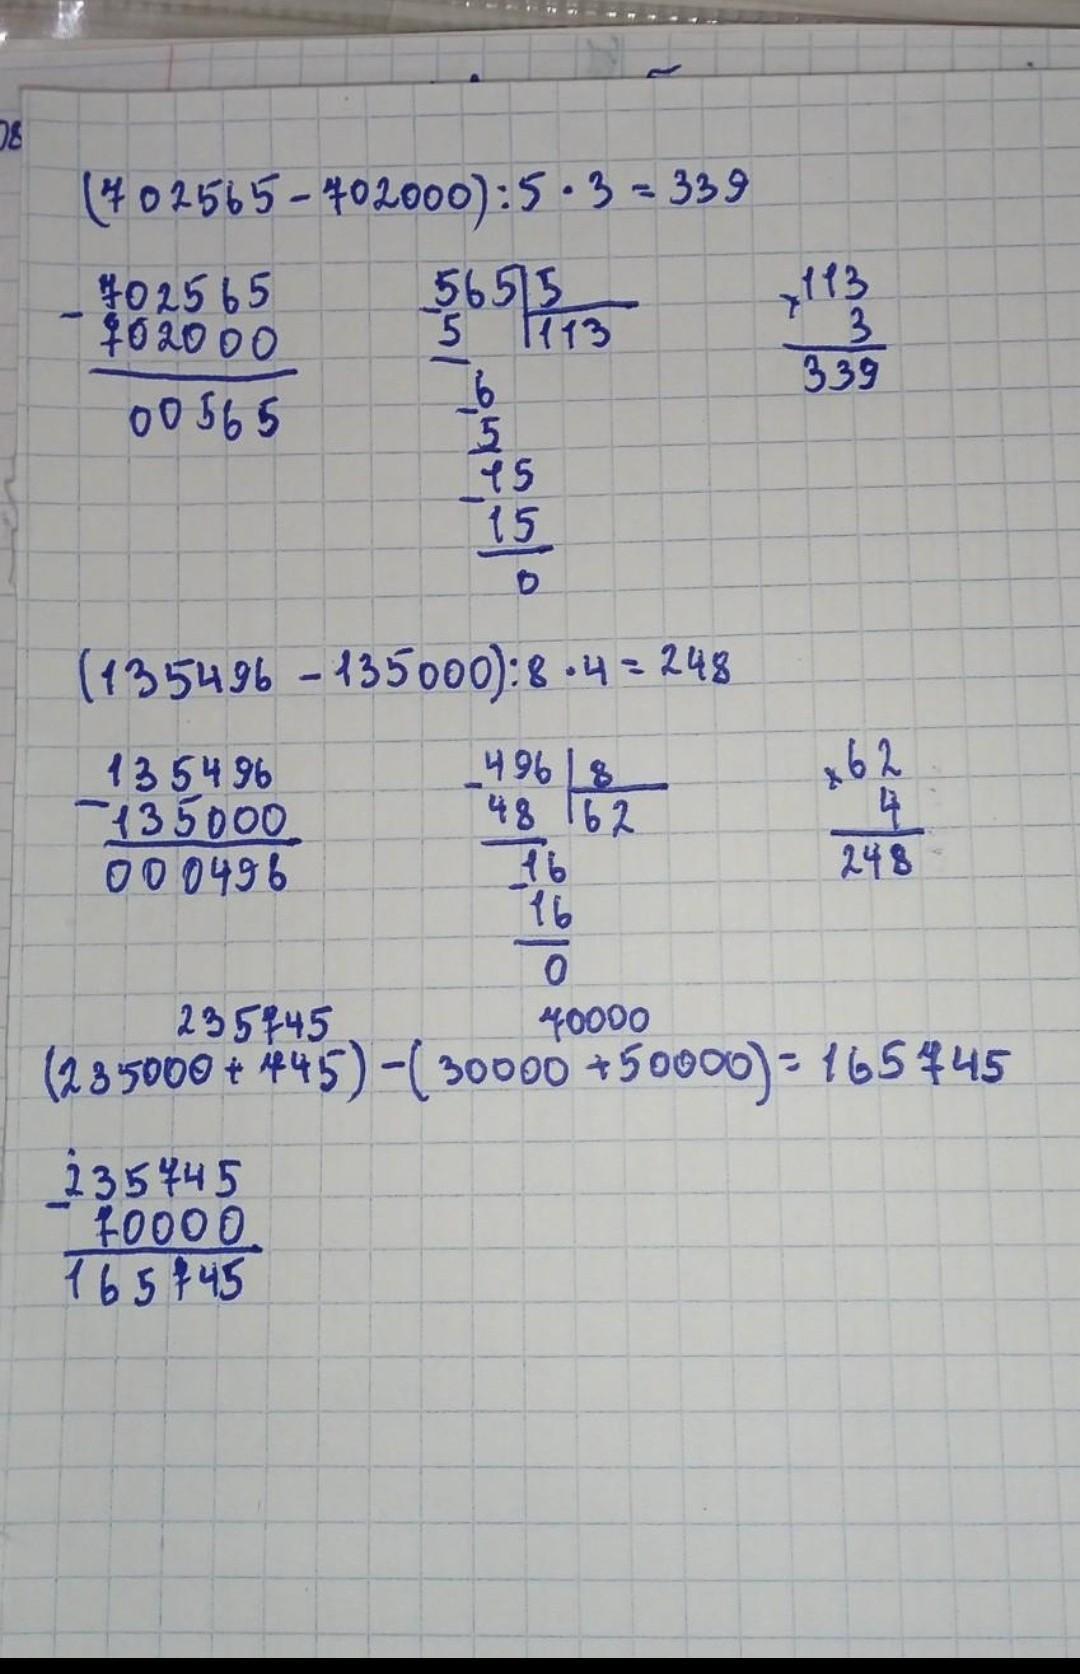 08
(702565-702000):5·3=339
-702565
702000
00565
-565|5
5 113
-6
5
-15
15
0
×113
3
339
(135496-135000):8·4=248
-135496
135000
000496
-496|8
48 62
-16
16
0
×62
4
248
235745 70000
(235000+745)-(30000+50000)=165745
-235745
70000
165745